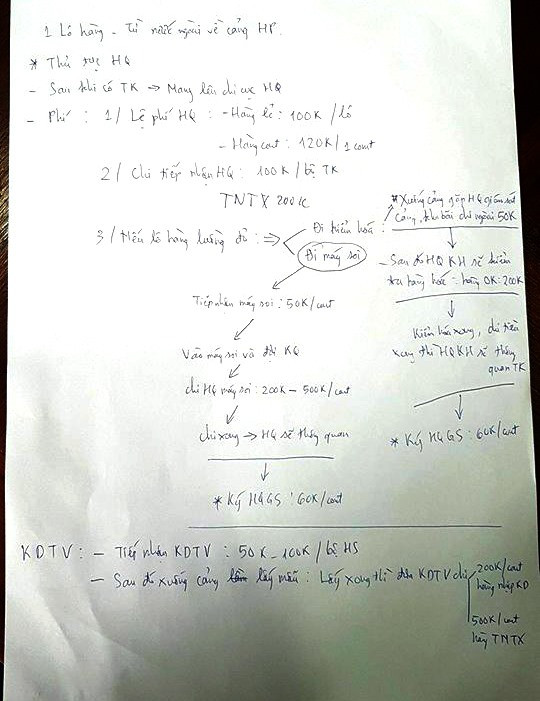 1 Lô hàng - Từ nước ngoài về cảng HP.
* Thủ tục HQ
- Sau khi có TK → Mang lên chi cục HQ
- Phí : 1/ Lệ phí HQ : - Hàng lẻ : 100K / lô
- Hàng cont : 120K / 1 cont
2/ Chi tiếp nhận HQ : 100K / bộ TK
TNTX 200K
3/ Nếu lô hàng luồng đỏ : ⇒
Đi kiểm hóa :
Đi máy soi
Tiếp nhận máy soi : 50K/cont
Vào máy soi và đợi KQ
chi HQ máy soi : 200K - 500K/cont
Chi xong → HQ sẽ thông quan
* Ký HQGS : 60K/cont
* Xuống cảng gặp HQ giám sát
cảng, kho bãi chi ngoài 50K
- Sau đó HQ KH sẽ kiểm
tra hàng hoá : hàng OK : 200K
Kiểm hóa xong, chi tiền
xong thì HQ KH sẽ thông
quan TK
* Ký HQGS : 60K/cont
KDTV : - Tiếp nhận KDTV : 50K - 100K / bộ HS
- Sau đó xuống cảng lấy mẫu : Lấy xong thì KDTV chi
200K/cont
hàng nhập KD
500K/cont
hàng TNTX